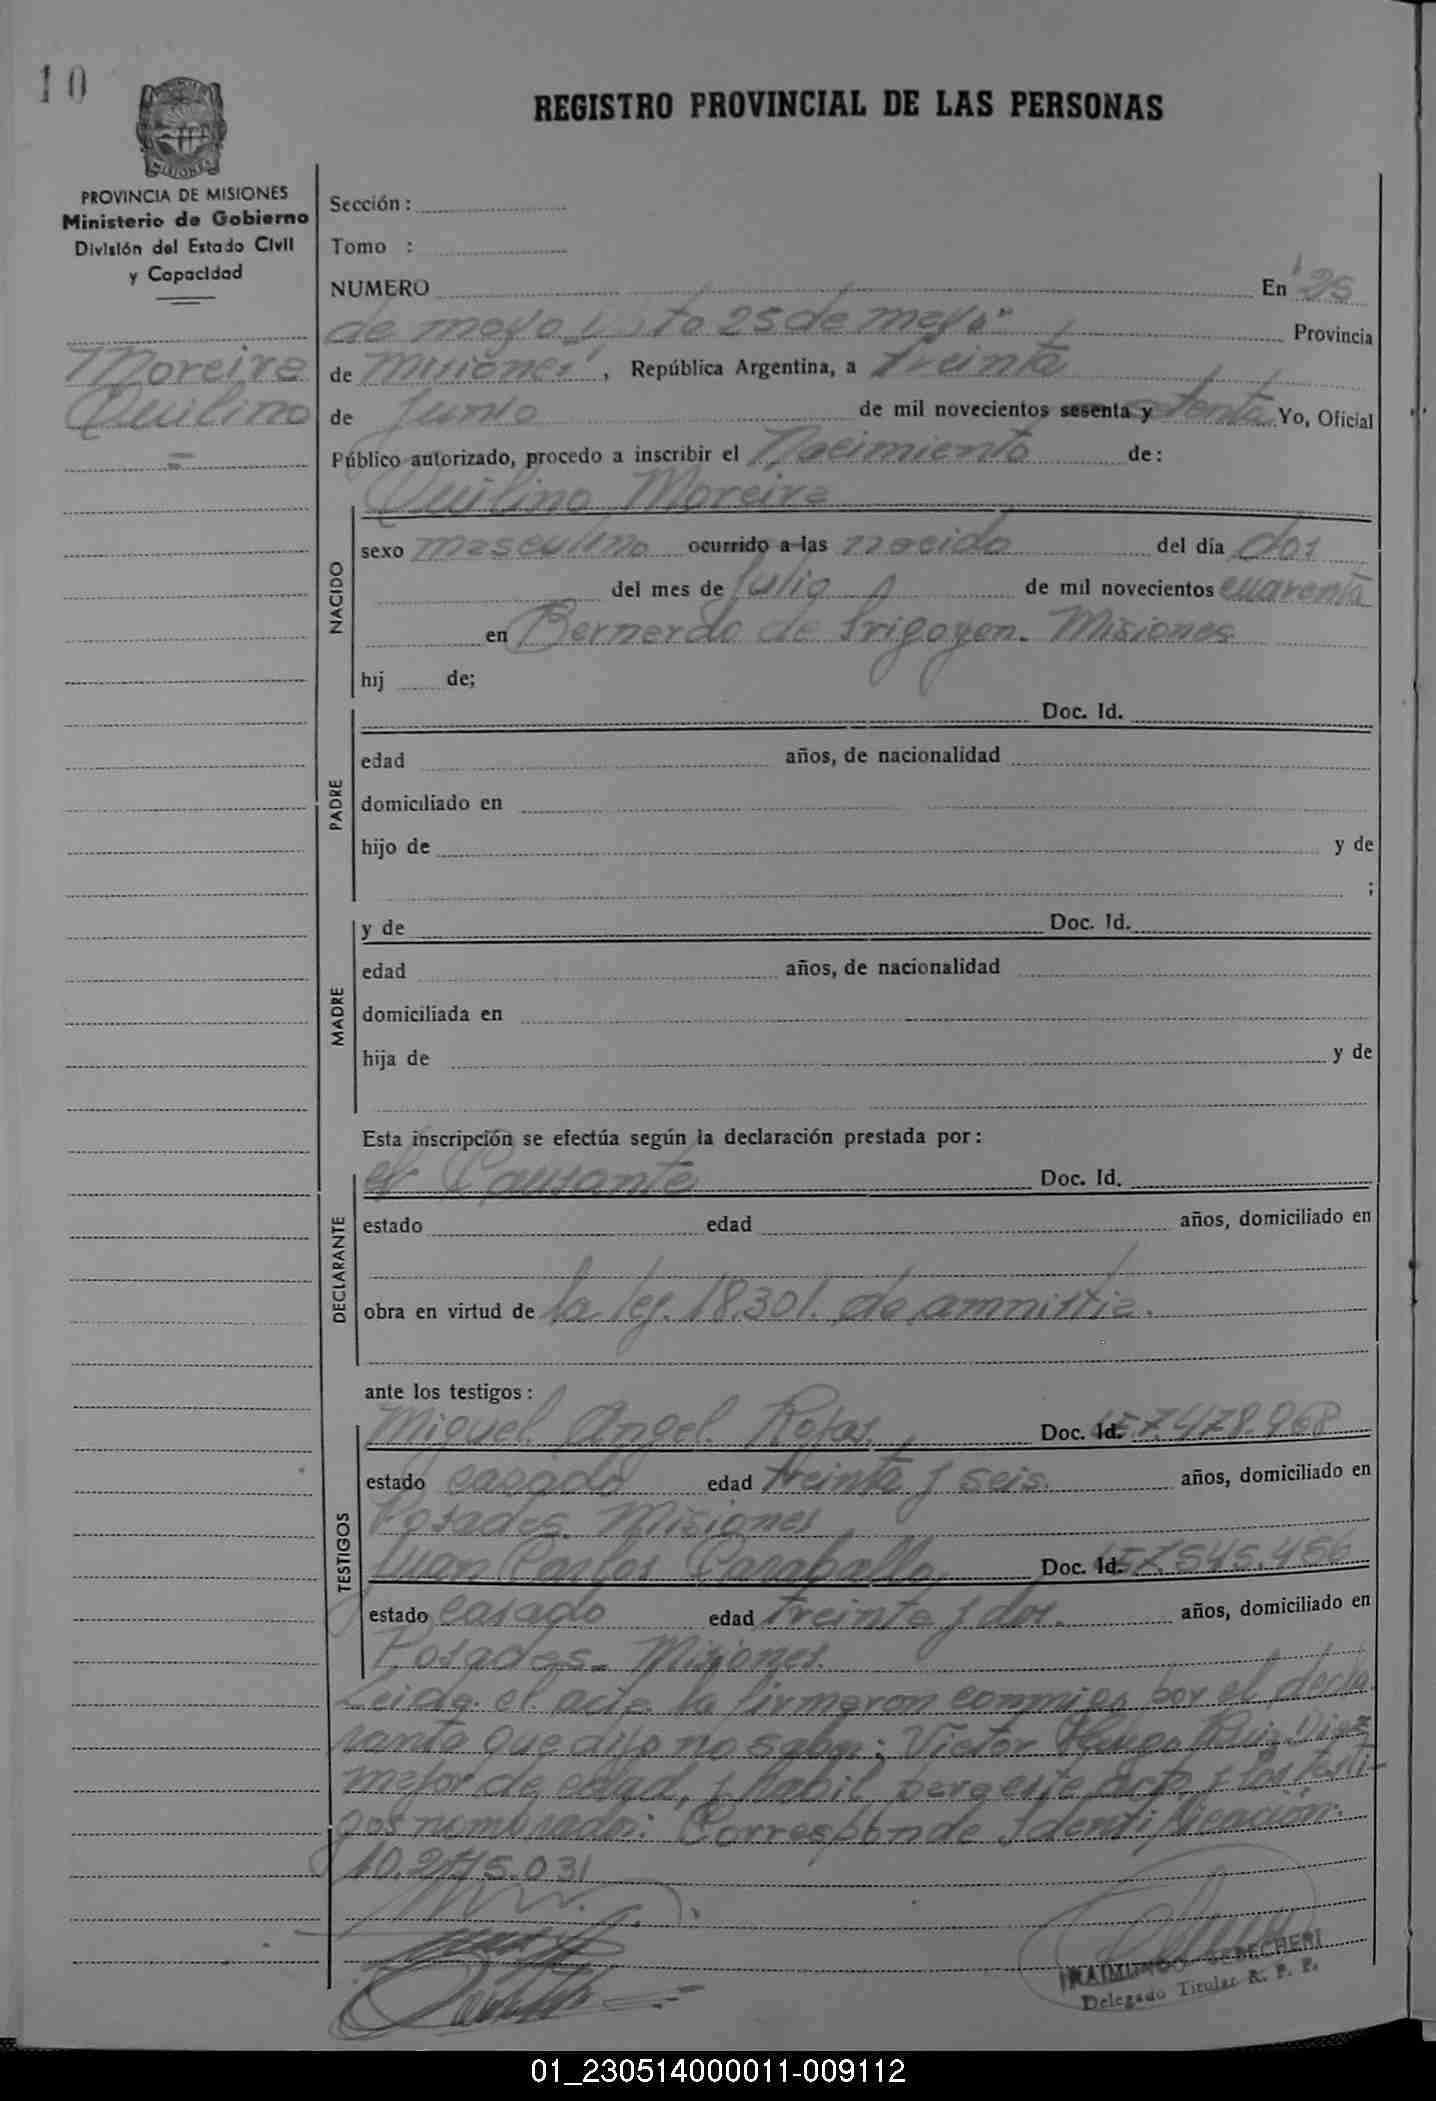 10
REGISTRO PROVINCIAL DE LAS PERSONAS
MISIONES
PROVINCIA DE MISIONES
Ministerio de Gobierno
División del Estado Civil
y Capacidad
Moreira
Quilino
Sección:
Tomo :
NUMERO En "25
de mayo", to 25 de mayo" Provincia
de Misiones, República Argentina, a treinta
de Junio de mil novecientos sesenta y setenta Yo, Oficial
Público autorizado, procedo a inscribir el Nacimiento de:
Quilino Moreira
NACIDO
sexo masculino ocurrido a las nacido del día dos
del mes de Julio de mil novecientos cuarenta
en Bernardo de Irigoyen. Misiones
hij de;
PADRE
Doc. Id.
edad años, de nacionalidad
domiciliado en
hijo de y de
;
MADRE
y de Doc. Id.
edad años, de nacionalidad
domiciliada en
hija de y de
Esta inscripción se efectúa según la declaración prestada por:
DECLARANTE
el Causante Doc. Id.
estado edad años, domiciliado en
obra en virtud de la ley. 18.301. de amnistia.
ante los testigos:
TESTIGOS
Miguel Angel Rojas. Doc. Id. 7.478.968
estado casado edad treinta y seis. años, domiciliado en
Posadas. Misiones
Juan Carlos Caraballo, Doc. Id. 7.545.456
estado casado edad treinta y dos. años, domiciliado en
Posadas- Misiones.
Leida el acta la firmaron conmigo por el decla
rante que dijo no saber; Victor Hugo Ruiz Diaz
mayor de edad, y habil para este acto y los testi-
gos nombrado: Corresponde Identificación:
10.275.031
RAIMUNDO
Delegado Titular R. P. P.
01_230514000011-009112